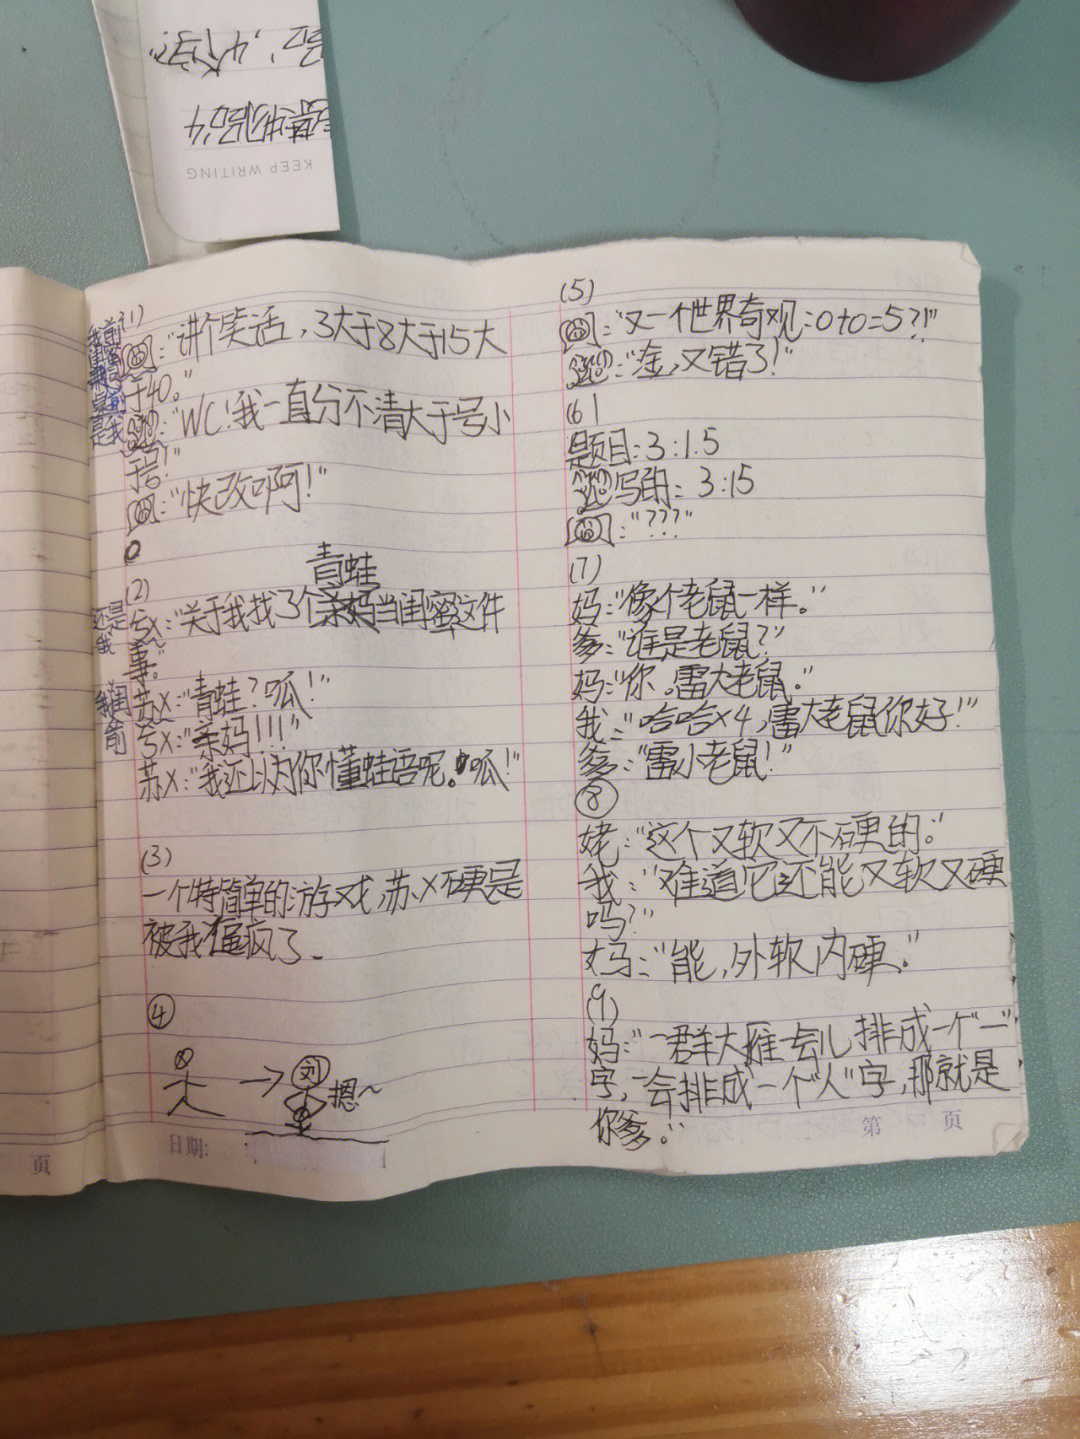 KEEP WRITING
(1)
:"讲个笑话,3大于8大于15大
于40。"
:"WC!我一直分不清大于号小
于号!"
:"快改啊!"
(2)
青蛙
X:"关于我找了个亲妈当闺蜜这件
事。"
还是
我
苏X:"青蛙?呱!"
X:"亲妈!!!"
苏X:"我还以为你懂蛙语呢。呱!"
(3)
一个特简单的游戏,苏X硬是
被我逼疯了.
④
→ 刘 摁~
日期:
(5)
:"又一个世界奇观:0+0=5?!"
:"淦,又错了!"
(6)
题目:3:1.5
写的:3:15
:"???"
(7)
妈:"像个老鼠一样。"
爹:"谁是老鼠?"
妈:"你。雷大老鼠。"
我:"哈哈x4,雷大老鼠你好!"
爹:"雷小老鼠!"
⑧
姥:"这个又软又不硬的。"
我:"难道它还能又软又硬
吗?"
妈:"能,外软内硬。"
(9)
妈:"一群大雁一会儿排成一个"一"
字,一会排成一个"人"字,那就是
你爹。"
第 页
页